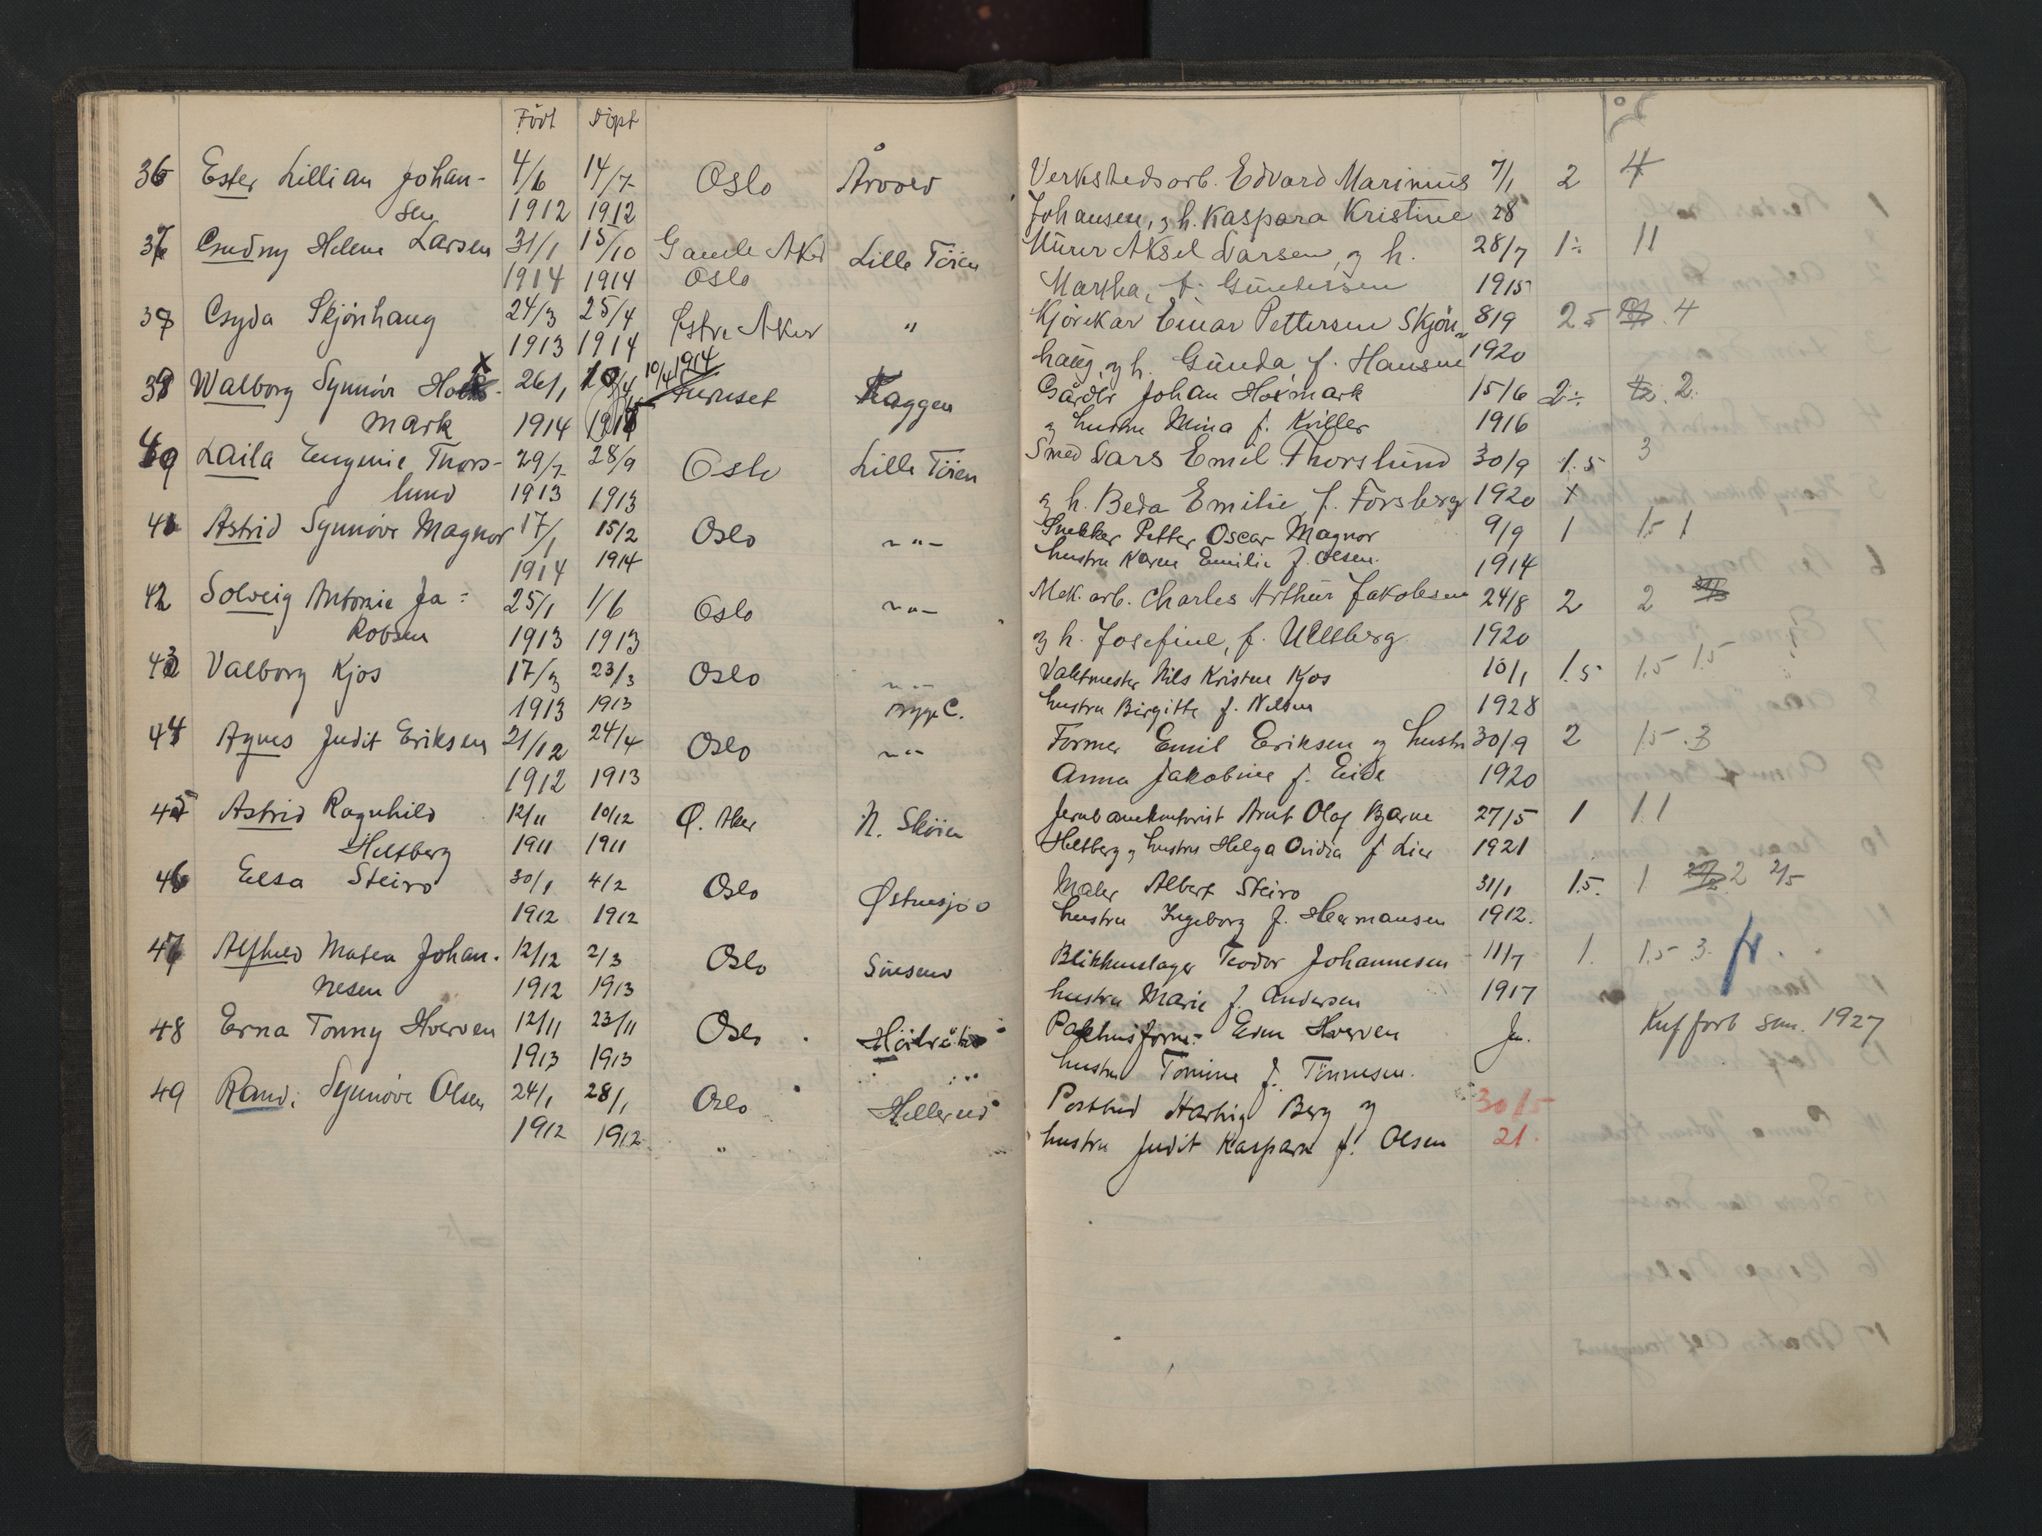 Født Døpt
36 Ester Lillian Johan- 4/6 14/7 Oslo Årvold Verkstedsarb. Edvard Marinius 7/1 2 4
sen 1912 1912 Johansen, og h. Kaspara Kristine 28
37 Gudny Helene Larsen 31/1 15/10 Gamle Aker Lille Tøien Murer Aksel Larsen, og h. 28/7 1÷ 11
1914 1914 Oslo Martha, f. Gundersen 1915
38 Gyda Skjønhaug 24/3 25/4 Østre Aker " Kjørekar Einar Pettersen Skjøn- 8/9 25 4
1913 1914 haug, og h. Gunda, f. Hansen 1920
39 Walborg Synnøv Hox- 26/1 10/4 1914 Furuset Kaggen Gårdbr Johan Hoxmark 15/6 2÷ 2
mark 1914 og hustru Mina f. Kviller 1916
40 Laila Eugenie Thors- 29/7 28/9 Oslo Lille Tøien Smed Lars Emil Thorslund 30/9 1.5 3
lund 1913 1913 og h. Beda Emilie, f. Forsberg 1920 +
41 Astrid Synnøve Magnor 17/1 15/2 Oslo -"- Snekker Petter Oscar Magnor 9/9 1 1.5 1
1914 1914 hustru Karen Emilie f. Olsen. 1914
42 Solveig Antonie Ja= 25/1 1/6 Oslo -"- Mek. arb. Charles Arthur Jakobsen 24/8 2 2
kobsen 1913 1913 og h. Josefine, f. Ullsberg 1920
43 Valborg Kjos 17/3 23/3 Oslo -"- Vaktmester Nils Kristen Kjos 10/1 1.5 1.5 1.5
1913 1913 Bygg C. hustru Birgitte f. Nelsen 1928
44 Agnes Judit Eriksen 21/12 24/4 Oslo -"- Former Emil Eriksen og hustru 30/9 2 1.5 .3
1912 1913 Anna Jakobine f. Eide 1920
45 Astrid Ragnhild 12/11 10/12 Ø. Aker N. Skøien Jernbanekontorist Arnt Olaf Bjarne 27/5 1 1.1
Heltberg 1911 1911 Heltberg og hustru Helga Ovidia f. Lier 1921
46 Elsa Steiro 30/1 4/2 Oslo Østensjø Maler Albert Steiro 31/1 1.5. 1 2 2/5
1912 1912 hustru Ingeborg f. Hermansen 1912.
47 Alfhild Matea Johan- 12/12 2/3 Oslo Sinsen Blikkenslager Teodor Johannesen 11/7 1. 1.5 3.
nesen 1912 1913 hustru Marie f. Andersen 1917
48 Erna Tonny Hverven 12/11 23/11 Oslo Pakhusform. Hverven Ja. Kuf forb sen. 1927
1913 1913 hustru Tomine f. Tønnesen.
49 Randi Synnøve Olsen 24/1 28/1 Oslo Hellerud Postbud Hartvig Berg og 30/5
1912 1912 " hustru Judit Kaspara f. Olsen 21.